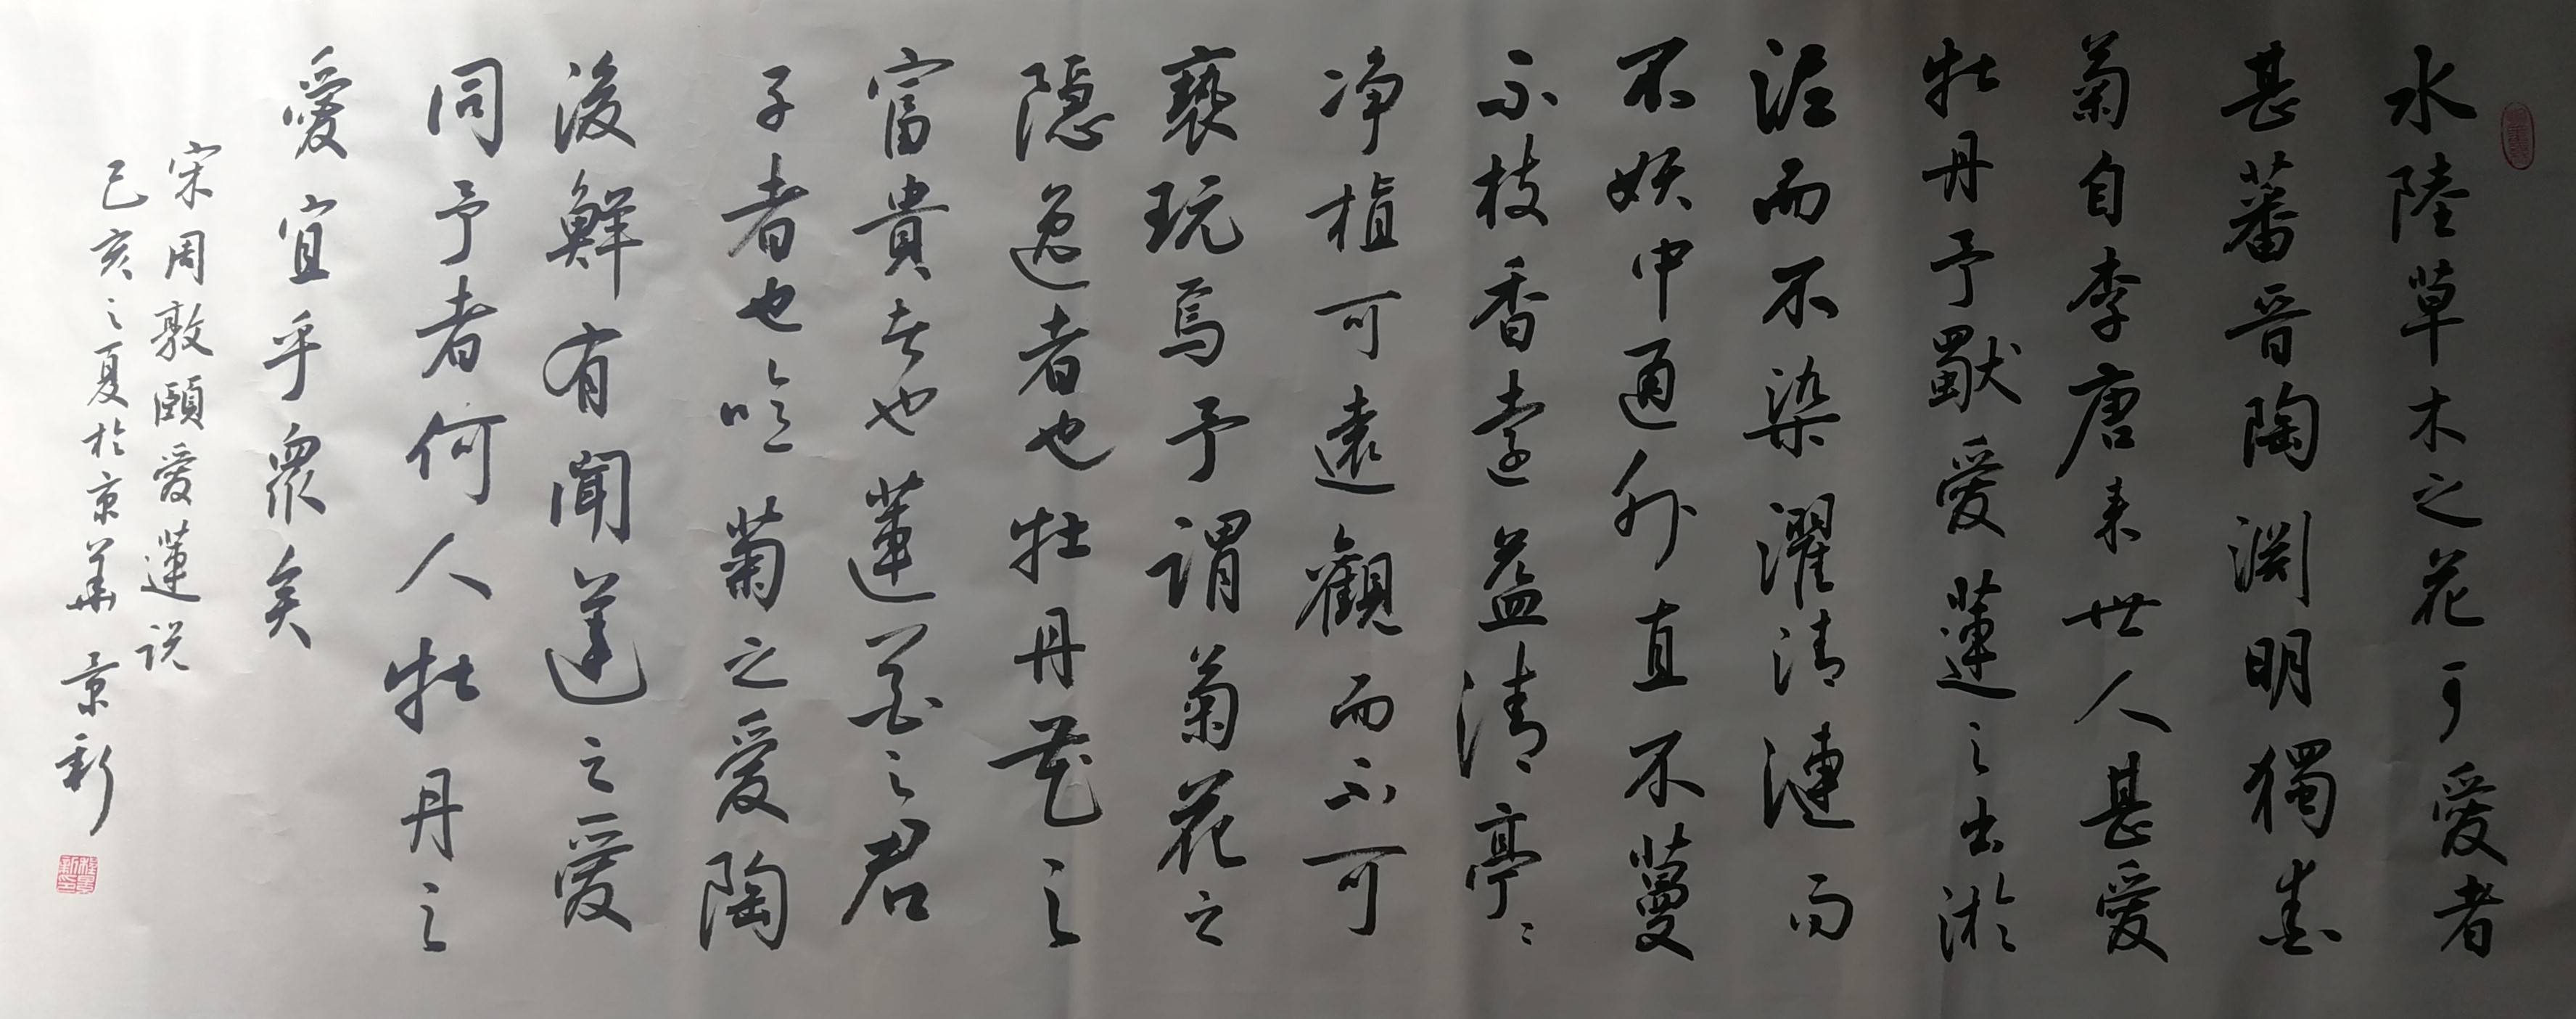 水陸草木之花可愛者
甚蕃晉陶淵明獨愛
菊自李唐来世人甚愛
牡丹予獸愛蓮之出淤
泥而不染濯清漣而
不妖中通外直不蔓
不枝香遠益清亭亭
净植可遠觀而不可
褻玩焉予謂菊花之
隱逸者也牡丹花之
富貴者也蓮花之君
子者也噫菊之愛陶
後鮮有聞蓮之愛
同予者何人牡丹之
愛宜乎眾矣
宋周敦頤愛蓮说
己亥之夏於京華 景新